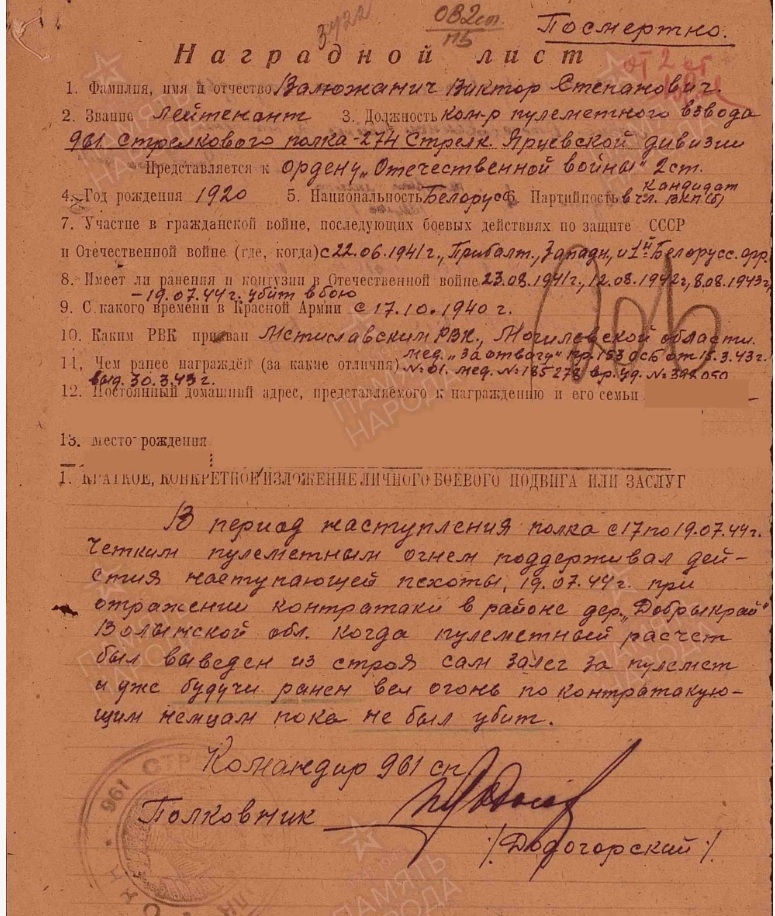 3422
ОВ2ст
П5
Посмертно.
Наградной лист
1. Фамилия, имя и отчество Валюжанич Виктор Степанович.
2. Звание Лейтенант 3. Должность ком-р пулеметного взвода
961 стрелкового полка-274 Стрелк. Ярцевской дивизии
Представляется к Ордену „Отечественной войны" 2ст.
4. Год рождения 1920 5. Национальность Белорус 6. Партийность Кандидат
в чл. ВКП(б)
7. Участие в гражданской войне, последующих боевых действиях по защите СССР
и Отечественной войне (где, когда) с 22.06.1941г., Прибалт., Западн, и 1й Белорусс. фр.
8. Имеет ли ранения и контузии в Отечественной войне 23.08.1941г, 12.08.1942г, 8.08.1943г,
- 19.07.44г. убит в бою
9. С какого времени в Красной Армии с 17.10.1940г.
10. Каким РВК призван Мстиславским РВК, Могилевской области.
11. Чем ранее награждён (за какие отличия) мед. „За отвагу" пр. 153 ОСБ от 15.3.43г.
№01. мед. №185278 вр. уд. №398050
выд. 30.3.43г.
12. Постоянный домашний адрес, представляемого к награждению и его семьи
13. Место рождения
I. КРАТКОЕ, КОНКРЕТНОЕ ИЗЛОЖЕНИЕ ЛИЧНОГО БОЕВОГО ПОДВИГА ИЛИ ЗАСЛУГ
В период наступления полка с 17 по 19.07.44г.
четким пулеметным огнем поддерживал дей-
ствия наступающей пехоты, 19.07.44г. при
отражении контратаки в районе дер. „Добрыкрай"
Волынской обл. когда пулеметный расчет
был выведен из строя сам залег за пулемет
и уже будучи ранен вел огонь по контратакую-
щим немцам пока не был убит.
Командир 961 сп
Полковник
/Додогорский/.
961 СТР
ПАМЯТЬ
НАРОДА